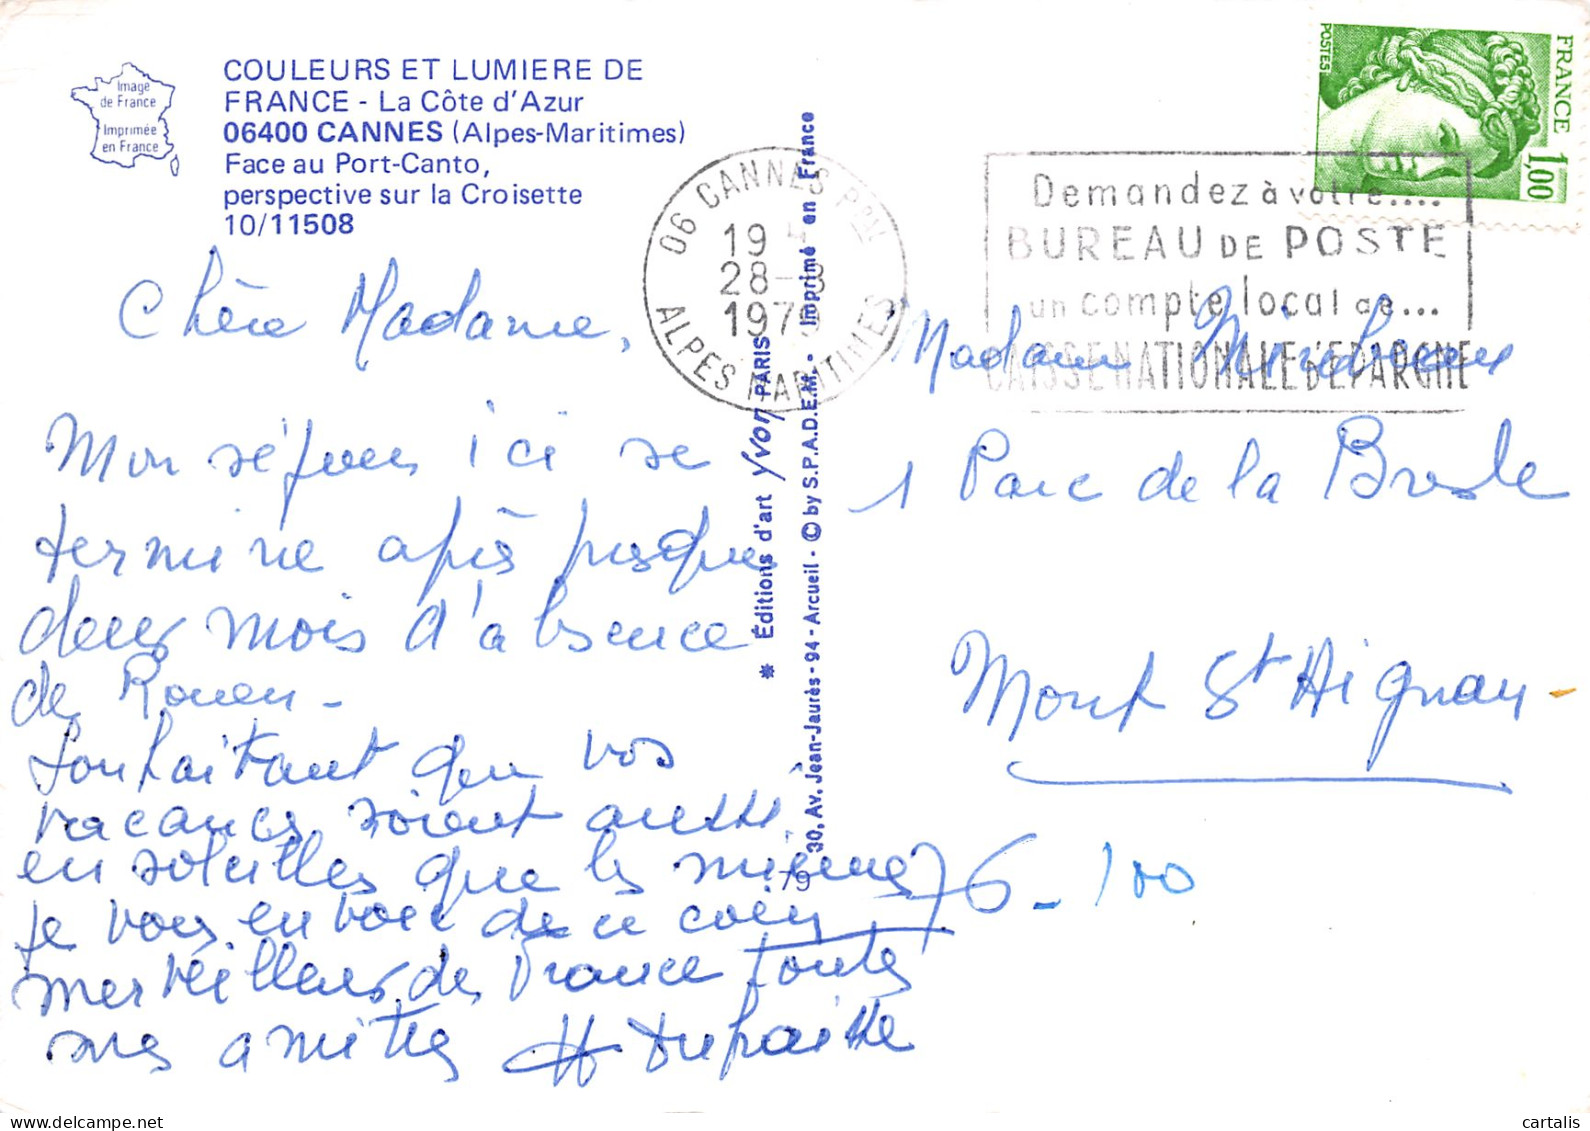 Image
de France
Imprimée
en France
COULEURS ET LUMIERE DE
FRANCE - La Côte d'Azur
06400 CANNES (Alpes-Maritimes)
Face au Port-Canto,
perspective sur la Croisette
10/11508
Chère Madame,
Mon séjour ici se
termine après presque
deux mois d'absence
de Rouen -
Souhaitant que vos
vacances soient aussi
ensoleillées que les miennes
je vous envoie de ce coin
merveilleux de France toutes
mes amitiés
* Éditions d'art Yvon PARIS
30, Av. Jean-Jaurès - 94 - Arcueil - © by S.P.A.D.E.M. - Imprimé en France
06 CANNES Pal
19
28-8
197
ALPES MARITIMES
Demandez à votre....
BUREAU DE POSTE
un compte local de...
CAISSE NATIONALE D'EPARGNE
FRANCE
1,00
POSTES
Madame
1 Parc de la Bresle
Mont St Aignan -
76 - 100
79
cartalis
www.delcampe.net